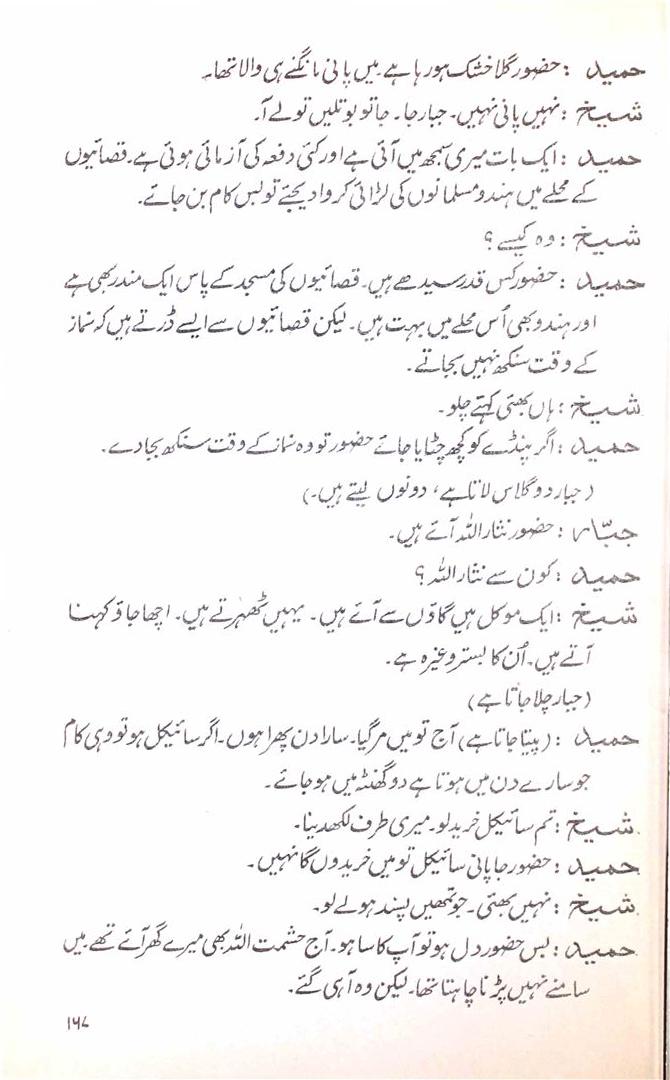 حمید : حضور گلا خشک ہو رہا ہے۔ میں پانی مانگنے ہی والا تھا۔
شیخ : نہیں پانی نہیں۔ جبار جا۔ جا تو بوتلیں تو لے آ۔
حمید : ایک بات میری سمجھ میں آئی ہے اور کئی دفعہ کی آزمائی ہوئی ہے۔ قصائیوں
کے محلے میں ہندو مسلمانوں کی لڑائی کروا دیجئے تو بس کام بن جائے۔
شیخ : وہ کیسے؟
حمید : حضور کس قدر سیدھے ہیں۔ قصائیوں کی مسجد کے پاس ایک مندر بھی ہے
اور ہندو بھی اُس محلے میں بہت ہیں۔ لیکن قصائیوں سے ایسے ڈرتے ہیں کہ نماز
کے وقت سنکھ نہیں بجاتے۔
شیخ : ہاں بھئی کہتے چلو۔
حمید : اگر پنڈے کو کچھ چٹایا جائے حضور تو وہ نماز کے وقت سنکھ بجا دے۔
(جبار دو گلاس لاتا ہے، دونوں پیتے ہیں۔)
جبّار : حضور نثار اللہ آئے ہیں۔
حمید : کون سے نثار اللہ؟
شیخ : ایک موکل ہیں گاؤں سے آئے ہیں۔ یہیں ٹھہرتے ہیں۔ اچھا جاؤ کہنا
آتے ہیں۔ اُن کا بستر وغیرہ ہے۔
(جبار چلا جاتا ہے)
حمید : (پیتا جاتا ہے) آج تو میں مر گیا۔ سارا دن پھرا ہوں۔ اگر سائیکل ہو تو وہی کام
جو سارے دن میں ہوتا ہے دو گھنٹہ میں ہو جائے۔
شیخ : تم سائیکل خرید لو۔ میری طرف لکھ دینا۔
حمید : حضور جاپانی سائیکل تو میں خریدوں گا نہیں۔
شیخ : نہیں بھئی۔ جو تمھیں پسند ہو لے لو۔
حمید : بس حضور دل ہو تو آپ کا سا ہو۔ آج حشمت اللہ بھی میرے گھر آئے تھے۔ میں
سامنے نہیں پڑنا چاہتا تھا۔ لیکن وہ آ ہی گئے۔
۱۶۷